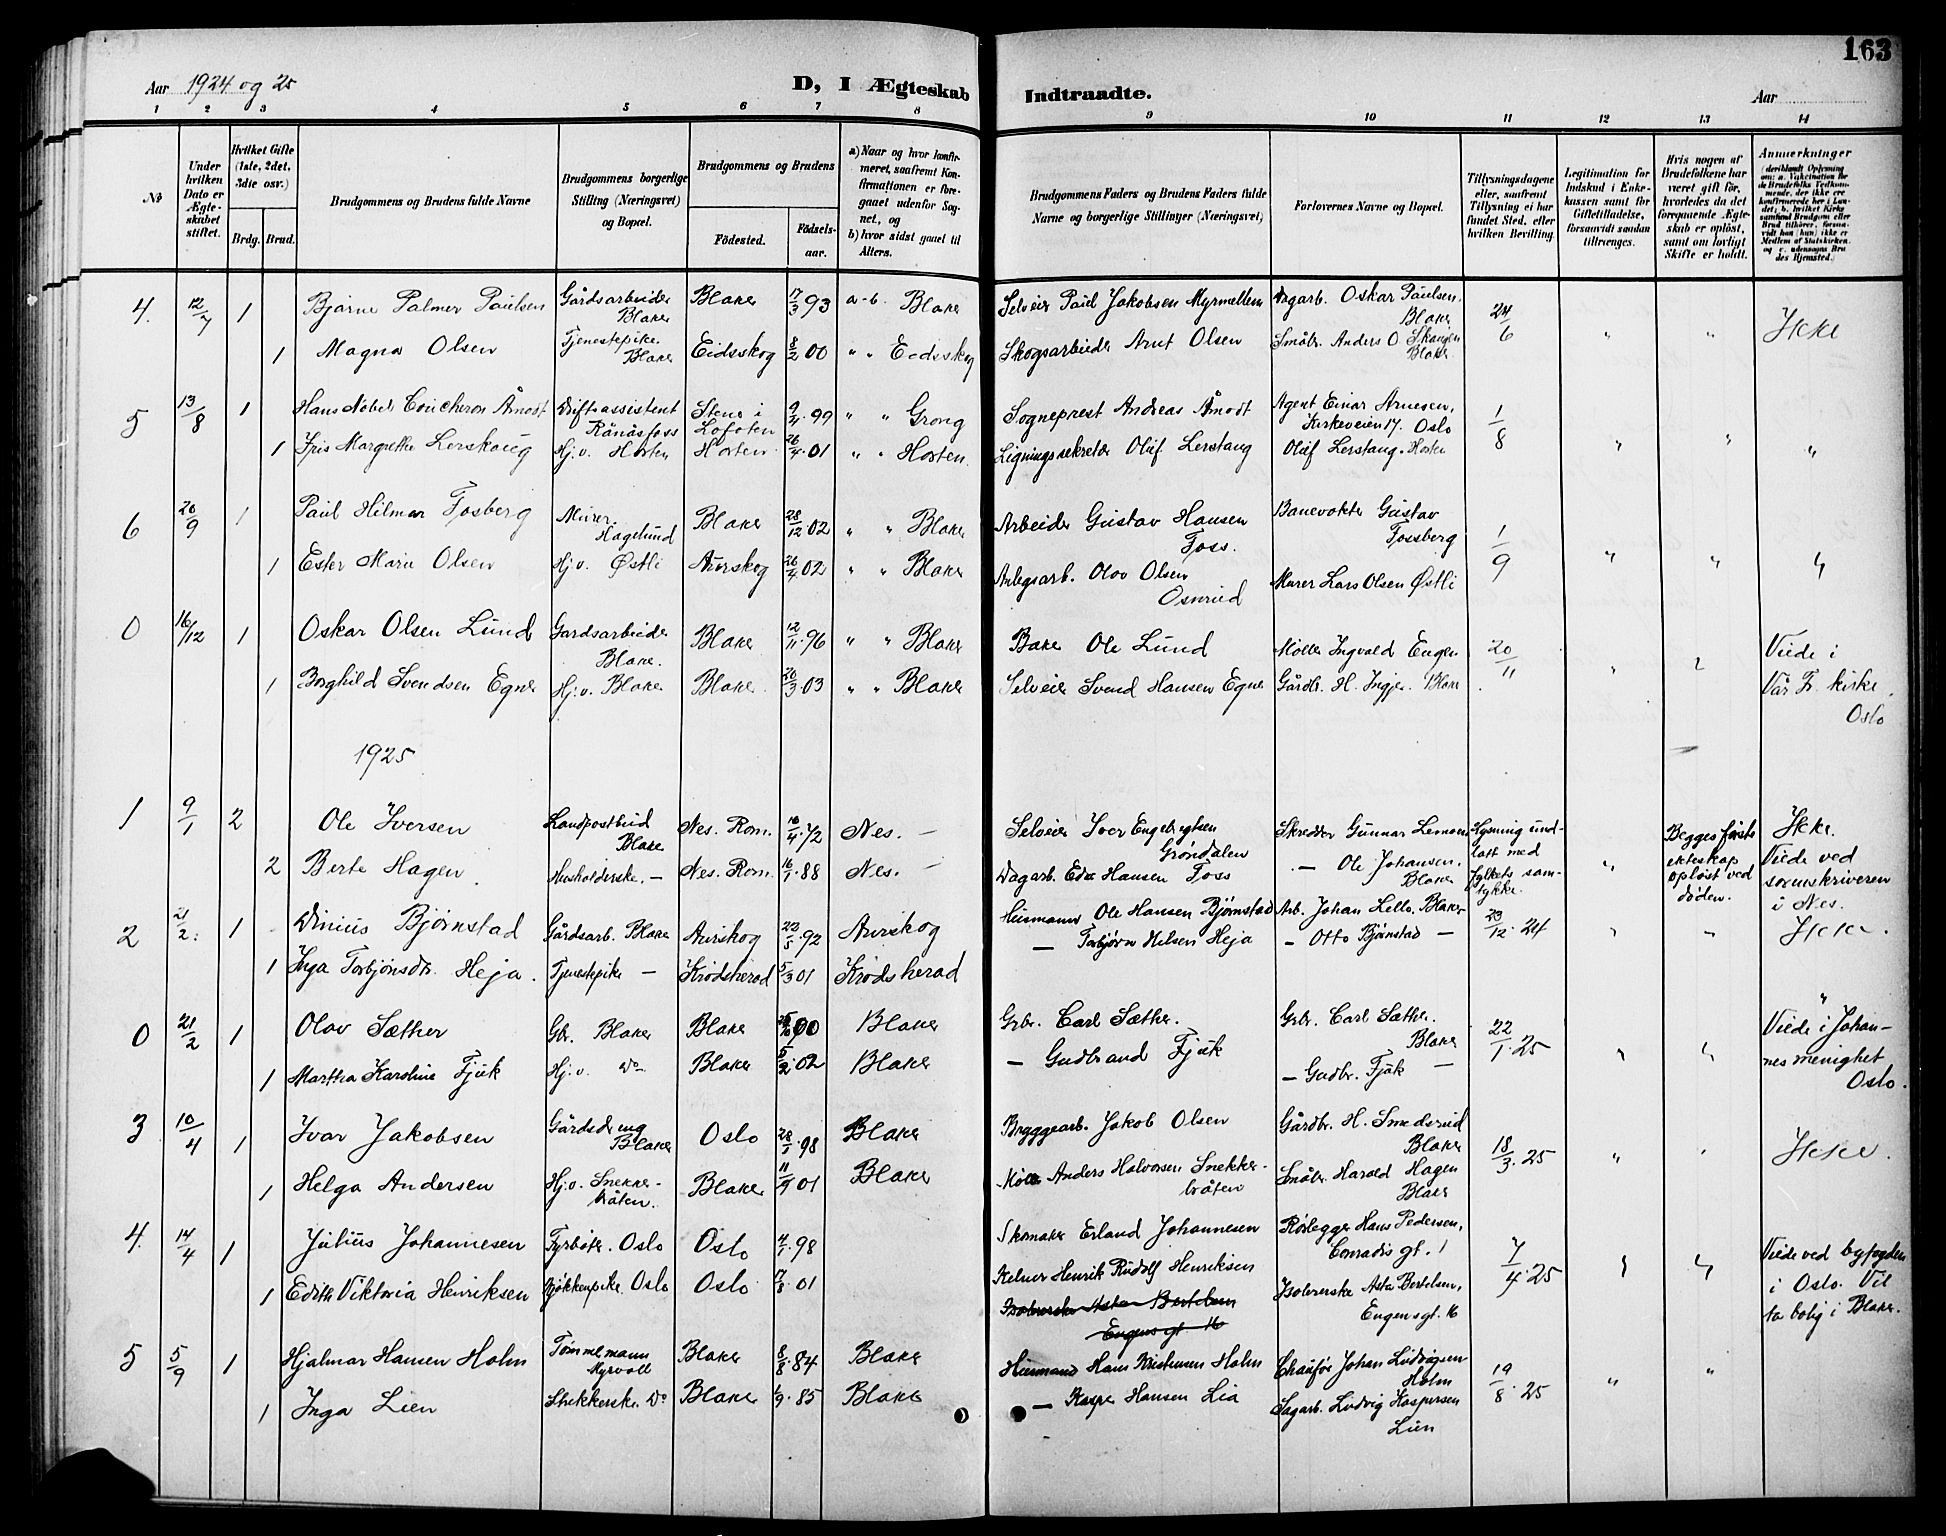 163
Aar 1924 og 25
D, I Ægteskab Indtraadte.
Aar
1 2 3 4 5 6 7 8 9 10 11 12 13 14
No
Under hvilken Dato er Ægteskabet stiftet.
Hvilket Gifte (1ste, 2det, 3die osv.)
Brdg. Brud.
Brudgommens og Brudens fulde Navne
Brudgommens borgerlige Stilling (Næringsvei) og Bopæl.
Brudgommens og Brudens
Fødested.
Fødselsaar.
a) Naar og hvor konfirmeret, saafremt Konfirmationen er foregaaet udenfor Sognet, og
b) hvor sidst gaaet til Alters.
Brudgommens Faders og Brudens Faders fulde Navne og borgerlige Stillinger (Næringsvei)
Forlovernes Navne og Bopæl.
Tillysningsdagene eller, saafremt Tillysning ei har fundet Sted, efter hvilken Bevilling
Legitimation for Indskud i Enkekassen samt for Giftetilladelse, forsaavidt saadan tiltrænges.
Hvis nogen af Brudefolkene har været gift før, hvorledes da det foregaaende Ægteskab er opløst, samt om lovligt Skifte er holdt.
Anmerkninger
4. 12/7 1 Bjarne Palmer Paulsen Gårdsarbeider Blaker Blaker 17/3 93 a-b. Blaker Selveier Paul Jakobsen Myrmellem Dagarb. Oskar Paulsen, Blaker 24/6 " " Ikke
1 Magna Olsen Tjenestepike. Blaker Eidsskog 8/2 00 " " Eidsskog Skogsarbeider Arnt Olsen Småbr. Anders O. Skaugen Blaker
5 13/8 1 Hans Nobels Coucheron Åmodt Driftsassistent Rånåsfoss Stene i Lofoten 9/4 99 " " Grong Sogneprest Andreas Åmodt Agent Einar Arnesen, Kirkeveien 17. Oslo 1/8 " " "
1 Iris Margrethe Lerskaug Hj.v. Horten Horten 26/4 01 " " Horten. Ligningssekretær Olaf Lerstang Olaf Lerstang. Horten
6 20/9 1 Paul Hilmar Fosberg Murer. Hagelund Blaker 28/12 02 " " Blaker Arbeider Gustav Hansen Foss. Banevokter Gustav Fossberg 1/9 " " "
1 Ester Marie Olsen Hj.v. Østli Aurskog 26/4 02 " " Blaker Anlegsarb. Olav Olsen Osnrud Murer Lars Olsen Østli
0 16/12 1 Oskar Olsen Lund Gardsarbeider Blaker. Blaker 12/11 96 " " Blaker Baker Ole Lund Møller Ingvald Engen 20/11 " " Viede i Vår Fr. kirke, Oslo
1 Borghild Svendsen Egner Hj.v. Blaker Blaker 20/3 03 " " Blaker Selveier Svend Hansen Egner Gårdbr. H. Ingjer. Blaker
1925
1 9/1 2 Ole Iversen Landpostbud Blaker Nes. Rom. 10/4 72 Nes. – Selveier Iver Engebrigtsen Grøndalen Skredder Gunnar Lemoen Lysning undlatt med fylkets samtykke. " Begges første ekteskap opløst ved døden. Ikke. Viede ved sorenskriveren i Nes.
2 Berte Hagen. Husholderske. – Nes. Rom. 16/1 88 Nes. – Dagarb. Edv. Hansen Foss – Ole Johansen. Blaker
2 21/2 1 Dinius Bjørnstad Gårdsarb. Blaker Aurskog 22/8 92 Aurskog Husmann Ole Hansen Bjørnstad Arb. Johan Lello. Blaker 23/12 24 " " Ikke.
1 Inga Torbjønsdtr. Heja. Tjenestepike – Krødsherad 5/3 01 Krødsherad – Torbjørn Nilsen Heja – Otto Bjørnstad –
0 21/2 1 Olav Sæther Gbr. Blaker Blaker 00 Blaker Grbr. Carl Sæther. Grbr. Carl Sæther. Blaker 22/1 25 " " " Viede i Johannes menighet Oslo.
1 Martha Karoline Fjuk Hj.v. Do Blaker 5/2 02 Blaker – Gudbrand Fjuk – Gudbr. Fjuk –
3 10/4 1 Ivar Jakobsen Gårdsdreng Blaker Oslo 28/1 98 Blaker Bryggearb. Jakob Olsen Gårdbr. H. Smedsrud Blaker 18/3 25 " " Ikke.
1 Helga Andersen Hj.v. Snekkerbråten. Blaker 11/9 01 Blaker Møller Anders Halvorsen Snekkerbråten Småbr. Harald Hagen Blaker
4. 14/4 1 Julius Johannesen Fyrbøter. Oslo Oslo 4/1 98 Skomaker Erland Johannesen Rørlegger Hans Pedersen, Conradis gt. 1 7/4 25 " " Viede ved byfogden i Oslo. Vil ta bolig i Blaker.
1 Edith Viktoria Henriksen Kjøkkenpike. Oslo Oslo 17/8 01 Kelner Henrik Rudolf Henriksen Isolererske Asta Bertelsen, Engensgt. 16
Isolererske Asta Bertelsen Engens gt 16
5 5/9 1 Hjalmar Hansen Holm Tømmermann Myrvoll Blaker 8/8 84 Blaker Husmand Hans Kristensen Holm Chauffør Johan Ludvigsen Holm 19/8 25 " "
1 Inga Lien Strikkerske. Do Blaker 1/9 85 Blaker – Kasper Hansen Lia Sagarb. Ludvig Kaspersen Lien